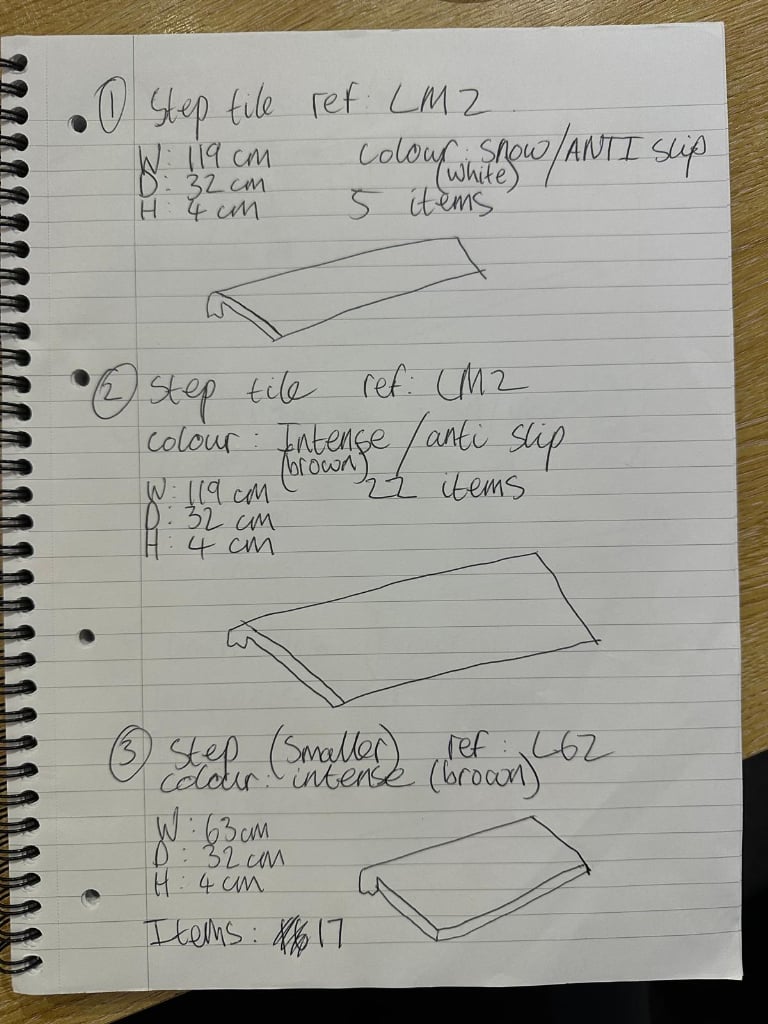 ① Step tile ref: LM2
W: 119 cm colour: snow/ANTI slip
D: 32 cm (white)
H: 4 cm 5 items
② Step tile ref: LM2
colour: Intense/anti slip
(brown)
W: 119 cm 22 items
D: 32 cm
H: 4 cm
③ Step (smaller) ref: L62
colour: intense (brown)
W: 63cm
D: 32 cm
H: 4 cm
Items: 17